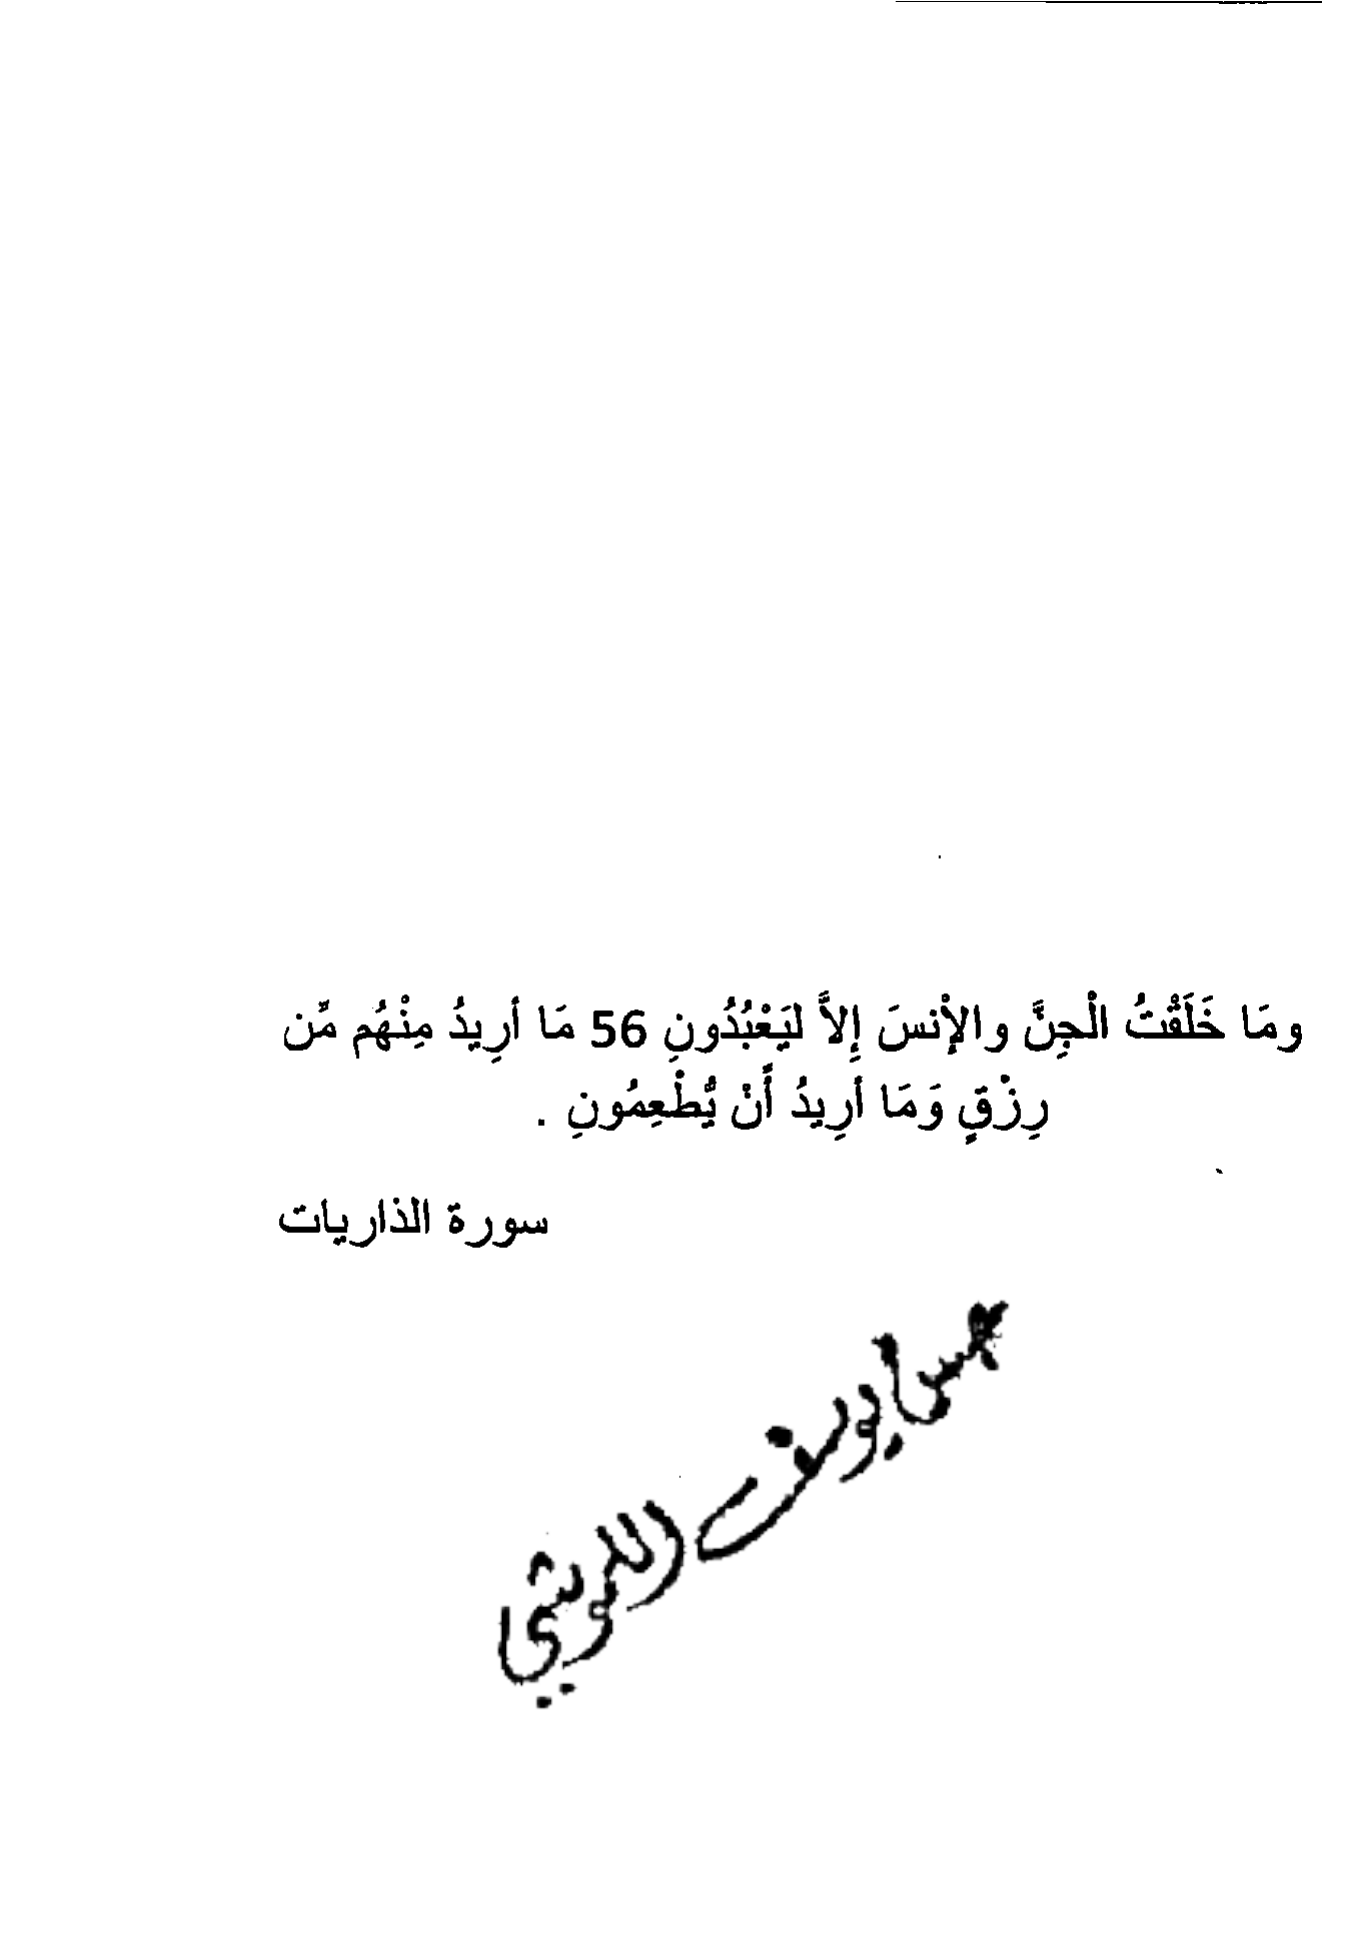 ومَا خَلَقْتُ الْجِنَّ والإْنسَ إِلاَّ لَيَعْبُدُونِ 56 مَا أرِيدُ مِنْهُم مِّن
رِزْقٍ وَمَا أرِيدُ أَنْ يُّطْعِمُونِ .
سورة الذاريات
يوسف